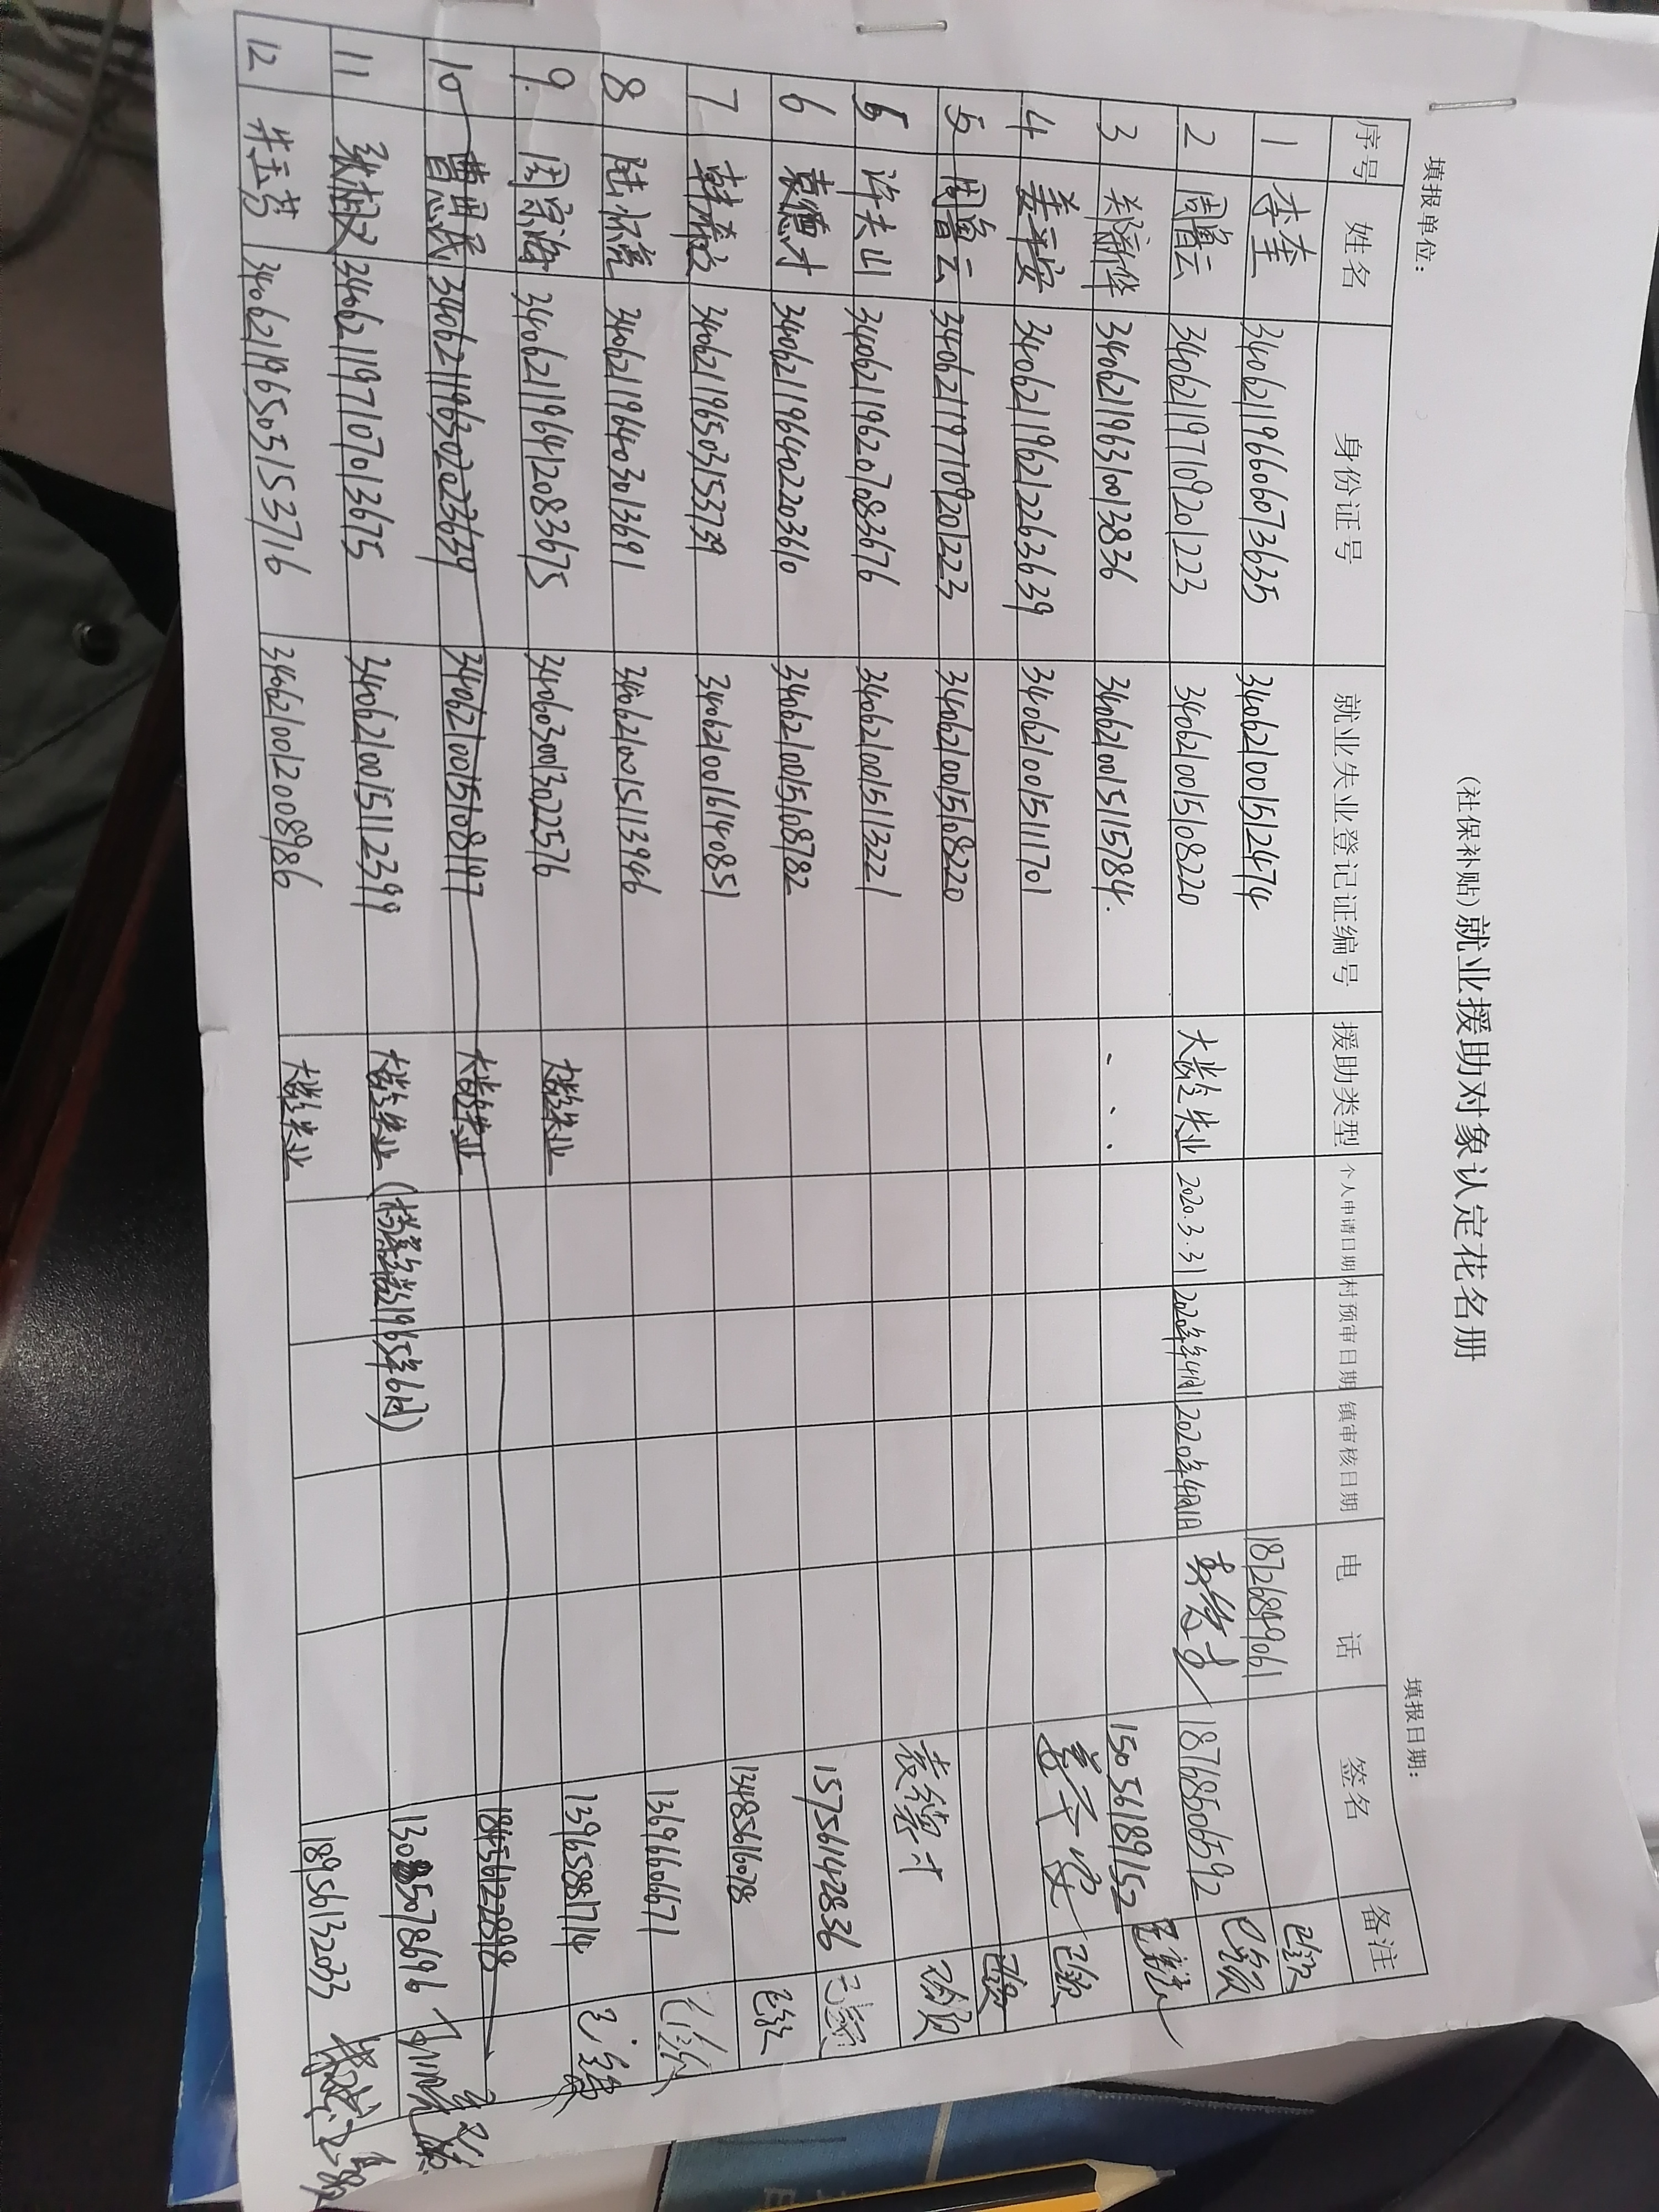 (社保补贴)就业援助对象认定花名册
填报单位: 填报日期:
序号 姓名 身份证号 就业失业登记证编号 援助类型 个人申请日期 村预审日期 镇审核日期 电话 签名 备注
1 李奎 340621196606073635 340621001512474 18726849061 已领
2 周鲁云 340621197109201223 3406210015108220 大龄失业 2020.3.31 2020年4月1 2020年4月1日 18768506592 已领
3 郑新华 340621196310013836 3406210015115784. 15056189152
4 姜平安 340621196212263639 3406210015111701 姜平安 已领
5 周鲁云 340621197109201223 3406210015108220 已领
6 许夫山 340621196207083676 3406210015113221 袁德才 已领
6 袁德才 340621196402203610 3406210015108782 15756142836 已领
7 340621196503153739 3406210016140851 13485616078 已领
8 陆怀亮 340621196403013691 3406210015113946 13696606671 已领
9. 周宗海 340621196412083675 3406030013022576 大龄失业 13965881714 已领
10 曹思民 340621196302023639 3406210015108197 大龄失业 18456122898
11 340621197107013675 3406210015112399 大龄失业 (档案年龄1965年6月)
12 朱玉芳 340621196505153716 3406210012008986 大龄失业 18956132033